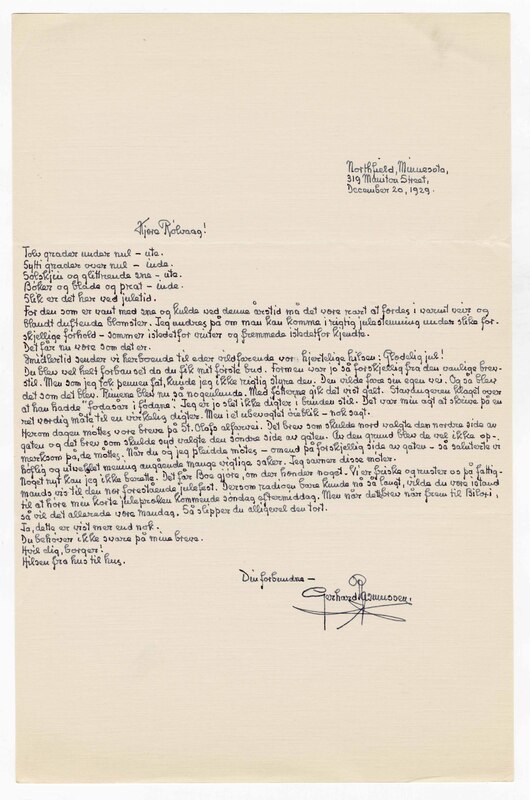 Northfield, Minnesota,
319 Manitou Street,
December 20, 1929.
Kjere Rölvaag!
Tolv grader under nul - ute.
Sytti grader over nul - inde.
Solskjin og glittrende sne - ute.
Bøker og blade og prat - inde.
Slik er det her ved juletid.
For den som er vant med sne og kulde ved denne årstid må det være rart at færdes i varmt veir og
blandt duftende blomster. Jeg undres på om man kan komme i rigtig julestemning under slike for-
skjellige forhold - sommer istedetfor vinter og fremmede istedetfor kjendte.
Det får nu være som det er.
Imidlertid sender vi herboende til eder vildfarende vor hjertelige hilsen: Glædelig jul!
Du blev vel helt forbauset da du fik mit første brev. Formen var jo så forskjellig fra den vanlige brev-
stil. Men som jeg tok pennen fat, kunde jeg ikke rigtig styre den. Den vilde fare sin egen vei. Og så blev
det som det blev. Rimene blev nu så nogenlunde. Med føtterne gik det vist galt. Stavangeren klaget over
at han hadde "fodasår i fodane". Jeg er jo slet ikke digter i bunden stil. Det var min agt at skrive på en
ret verdig måte til en virkelig digter. Men i et ubevogtet øieblik - nok sagt.
Herom dagen møttes vore breve på St. Olafs alfarvei. Det brev som skulde nord valgte den nordre side av
gaten og det brev som skulde syd valgte den søndre side av gaten. Av den grund blev de vel ikke op-
merksom på, de møttes. Når du og jeg pleidde møtes - omend på forskjellig side av gaten - så saluterte vi
høflig og utvekslet mening angående mange vigtige saker. Jeg savner disse møter.
Noget nyt kan jeg ikke berette. Det får Boe gjøre, om der hender noget. Vi er friske og ruster os på fattig-
mands vis til den nær forestående julefest. Dersom radioen bare kunde nå så langt, vilde du være istand
til at høre min korte juleprøken kommende søndag eftermiddag. Men når dette brev når frem til Biloxi,
så vil det allerede være mandag. Så slipper du alligevel den tort.
Ja, dette er vist mer end nok.
Du behøver ikke svare på mine breve.
Hvil dig, borger!
Hilsen fra hus til hus.
Din forbundne -
Gerhard Rasmussen.